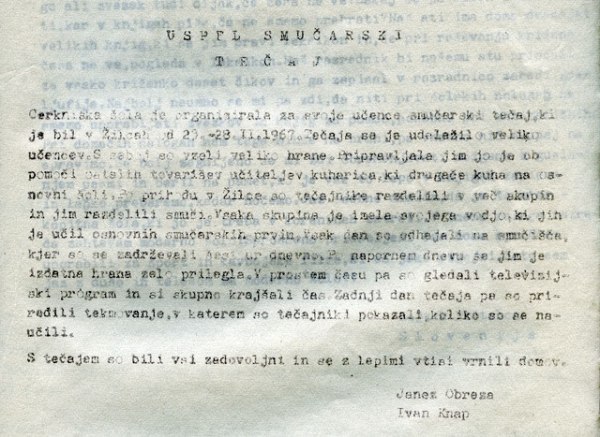 USPEL SMUČARSKI
TEČAJ
Cerkniška šola je organizirala za svoje učence smučarski tečaj,ki
je bil v Žilcah od 23.-28.II.1967.Tečaja se je udeležilo veliko
učencev.S seboj so vzeli veliko hrane.Pripravljala jim jo je ob
pomoči ostalih tovarišev učiteljev kuharica,ki drugače kuha na os-
novni šoli.Po prihodu v Žilce so tečajnike razdelili v več skupin
in jim razdelili smuči.Vsaka skupina je imela svojega vodjo,ki jih
je učil osnovnih smučarskih prvin.Vsak dan so odhajali na smučišča,
kjer so se zadrževali ur dnevno.Po napornem dnevu se jim je
izdatna hrana zelo prilegla.V prostem času pa so gledali televizij-
ski program in si skupno krajšali čas.Zadnji dan tečaja pa so pri-
redili tekmovanje,v katerem so tečajniki pokazali,koliko so se na-
učili.
S tečajem so bili vsi zadovoljni in se z lepimi vtisi vrnili domov.
Janez Obreza
Ivan Knap